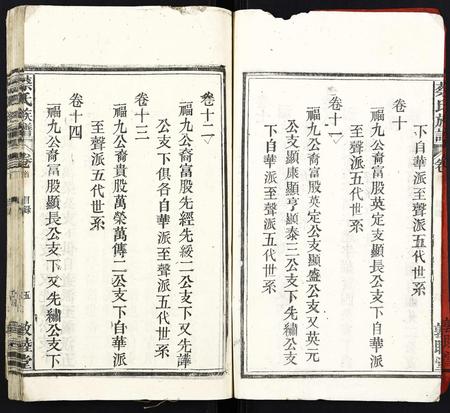 蔡氏族譜
卷
下自華派至聲派五代世系
卷十
福九公裔富股英定支顯長公支下自華派
至聲派五代世系
卷十一
福九公裔富股英定公支顯盛公支又英元
公支顯康顯亨顯泰三公支下俱各自華派至聲派五代世系
下自華派至聲派五代世系
敦睦堂
卷十二
福九公裔富股先經先綬二公支下又先譁
公支下俱各自華派至聲派五代世系
卷十三
福九公裔貴股萬榮萬傳二公支下自華派
至聲派五代世系
卷十四
福九公裔富股顯長公支下又先繡公支下
蔡氏族譜
卷首
目錄
五
敦睦堂